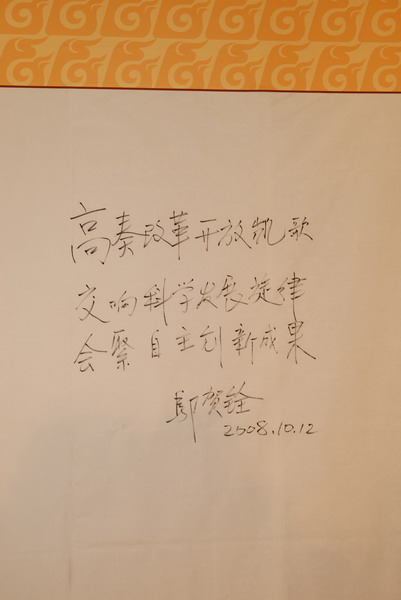 高奏改革开放凯歌
交响科学发展旋律
会聚自主创新成果
邬贺铨
2008.10.12